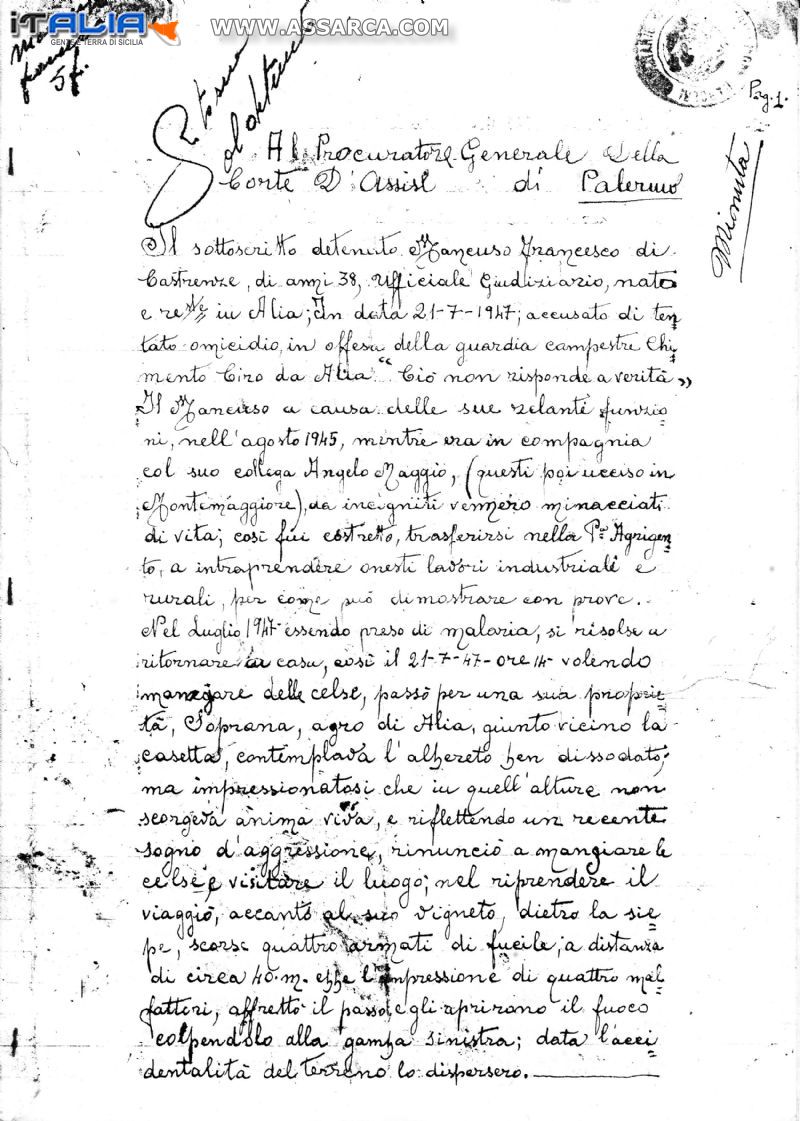 iTALIA
GENTE E TERRA DI SICILIA
WWW.ASSARCA.COM
Pag. 1.
Minuta
Al Procuratore Generale Della
Corte D'Assise di Palermo
Il sottoscritto detenuto Mancuso Francesco di
Castrenze, di anni 38, Ufficiale Giudiziario, nato
e re.te in Alia; In data 21-7-1947; accusato di ten=
tato omicidio, in offesa della guardia campestre Chi=
mento Ciro da Alia. "Ciò non risponde a verità"
Il Mancuso a causa delle sue zelante funzio=
ni, nell'agosto 1945, mentre era in compagnia
col suo collega Angelo Maggio, (questi poi ucciso in
Montemaggiore), da incogniti vennero minacciati
di vita; così fui costretto, trasferirsi nella P. Agrigen=
to, a intraprendere onesti lavori industriale e
rurali, per come può dimostrare con prove.
Nel Luglio 1947 essendo preso di malaria, si risolse a
ritornare a casa, così il 21-7-47- ore 14- volendo
mangare delle celse, passò per una sua proprie=
tà, Soprana, agro di Alia, giunto vicino la
casetta, contemplava l'albereto ben dissodato,
ma impressionatosi che in quell'alture non
scorgeva anima viva, e riflettendo un recente
sogno d'aggressione, rinunciò a mangiare le
celse e visitare il luogo; nel riprendere il
viaggio, accanto al suo vigneto, dietro la sie=
pe, scorse quattro armati di fucile, a distanza
di circa 40. m. ebbe l'impressione di quattro mal=
fattori, affrettò il passo e gli aprirano il fuoco
colpendolo alla gamba sinistra; data l'acci=
dentalità del terreno lo dispersero.